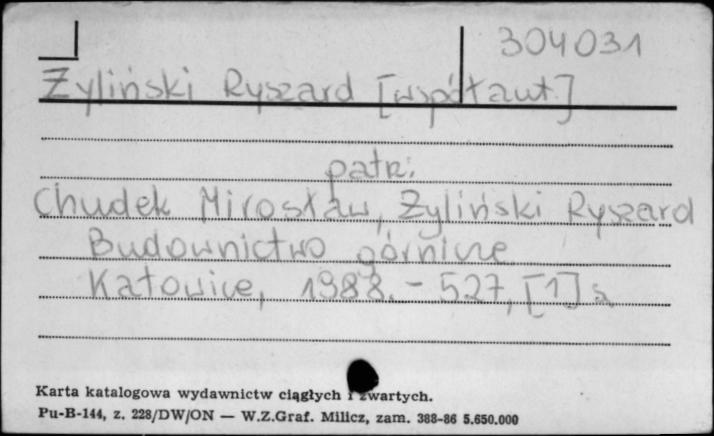 304031
Żyliński Ryszard [współaut.]
patrz:
Chudek Mirosław, Żyliński Ryszard
Budownictwo górnicze
Katowice, 1988. - 527, [1] s.
Karta katalogowa wydawnictw ciągłych i zwartych.
Pu-B-144, z. 228/DW/ON — W.Z.Graf. Milicz, zam. 388-86 5.650.000